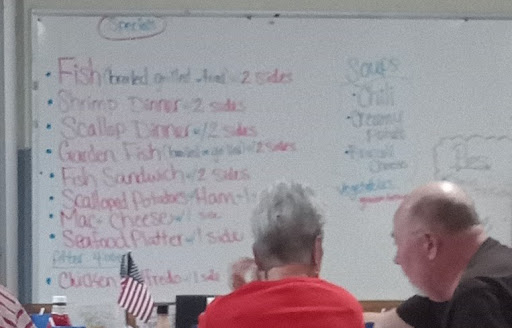 Specials
• Fish (broiled grilled fried) w/ 2 sides
• Shrimp Dinner w/ 2 sides
• Scallop Dinner w/ 2 sides
• Garden Fish (broiled or grilled) w/ 2 sides
• Fish Sandwich w/ 2 sides
• Scalloped Potatoes/Ham w/ 1
• Mac & Cheese w/ 1
• Seafood Platter w/ 1 side
After 4:00
• Chicken fredo w/ 1 side
Soups
• Chili
• Creamy Potato
• Broccoli Cheese
Vegetables
Pies